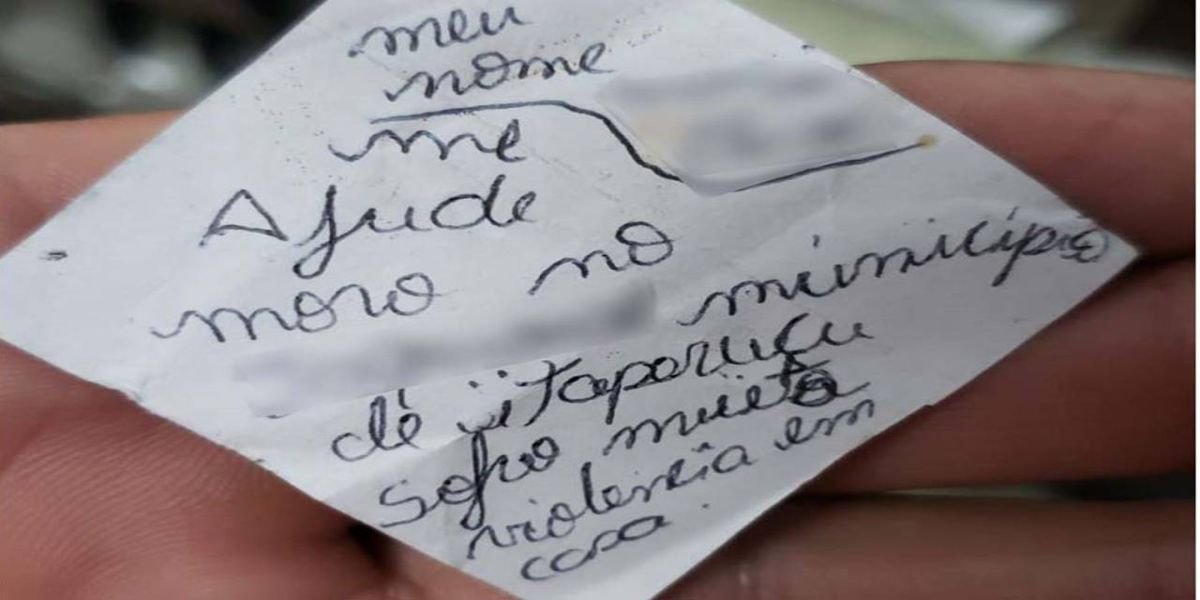 meu
nome
me
Ajude
moro no
municipio
de itaporucu
sofro muita
violencia em
casa.